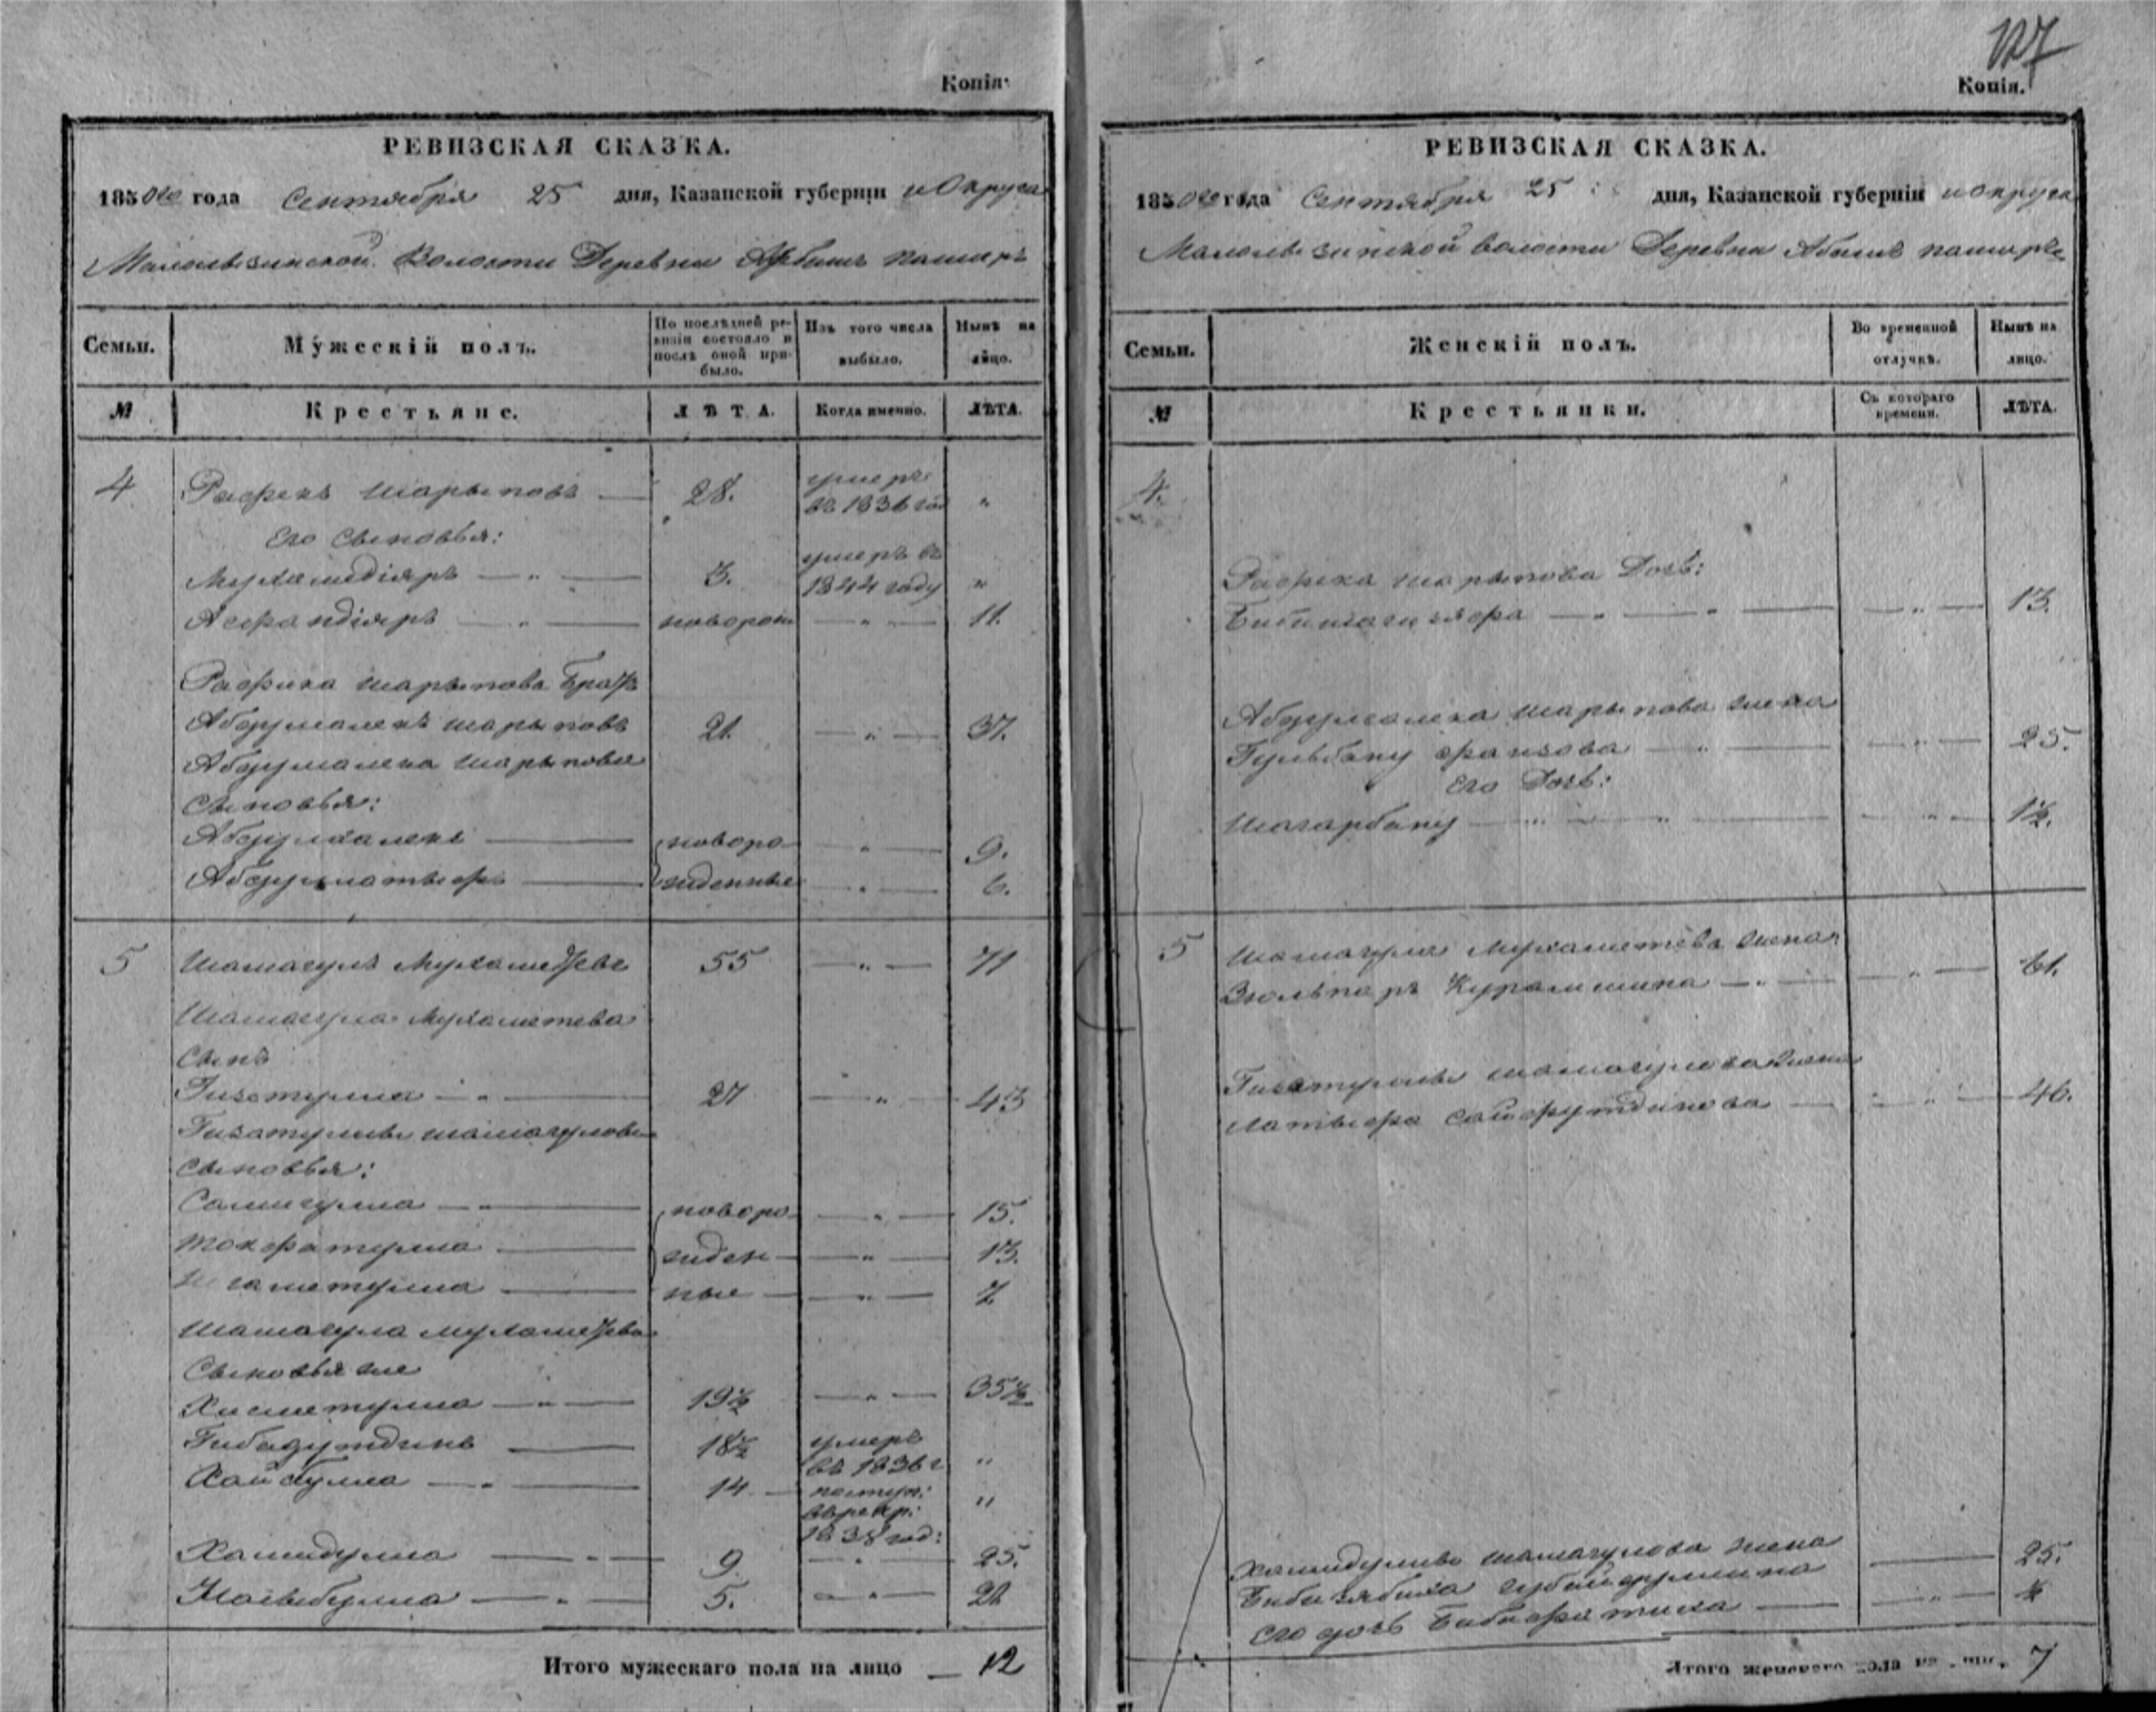 Копія.
РЕВИЗСКАЯ СКАЗКА.
1850го года Сентября 25 дня, Казанской губерніи и Округа
Волости Деревни
Семьи.
Мужескій полъ.
По послѣдней ревизіи состояло и послѣ оной прибыло.
Изъ того числа выбыло.
Нынѣ на лицо.
№
Крестьяне.
ЛѢТА.
Когда именно.
ЛѢТА.
4 Рафикъ Шарыповъ — 28. умеръ въ 1836 год "
Его Сыновья:
Мухамедіяръ — " — 3. умеръ въ 1844 году "
Асфандіяръ — " — новорож — " — 11.
Рафика Шарыпова Братъ
Абдулмалекъ Шарыповъ 21. — " — 37.
Абдулмалека Шарыпова
Сыновья:
Абдулхалекъ — новоро — " — 9.
Абдуллатыфъ — жденные — " — 6.
5 Шамагулъ Мухаметевъ 55 — " — 71
Шамагула Мухаметева
Сынъ
Гизетулла — " — 27 — " — 43
Гизатуллы Шамагулова
Сыновья:
Самигулла — " — новоро — " — 15.
— жден — " — 13.
— ные — " — 7
Шамагула Мухаметева
Сыновья же
Хисметулла — " — 19½ — " — 35½
Гибадутдинъ — 18½ умеръ въ 1836 г "
Хайбулла — " — 14 — поступ: въ рекр: 1838 год: "
Хамидулла — " — 9. — " — 25.
— " — 5. — " — 21
Итого мужескаго пола на лицо — 12
127
Копія.
РЕВИЗСКАЯ СКАЗКА.
1850го года Сентября 25 дня, Казанской губерніи и округа
волости Деревни
Семьи.
Женскій полъ.
Во временной отлучкѣ.
Нынѣ на лицо.
№
Крестьянки.
Съ котораго времени.
ЛѢТА.
4.
Рафика Шарыпова Дочь:
— " — 13.
Абдулмалека Шарыпова жена
Гульбану Фаизова — " — 25.
Его Дочь:
Шагарбану — " — 1½.
5 Шамагула Мухаметева жена
Зюльпаръ Курамшина — " — 61.
Гизатуллы Шамагулова жена
Латыфа Сайфутдинова — " — 46.
Хамидуллы Шамагулова жена
— 25.
его дочь Бибифатиха — " — ½
Итого женскаго пола на лицо 7